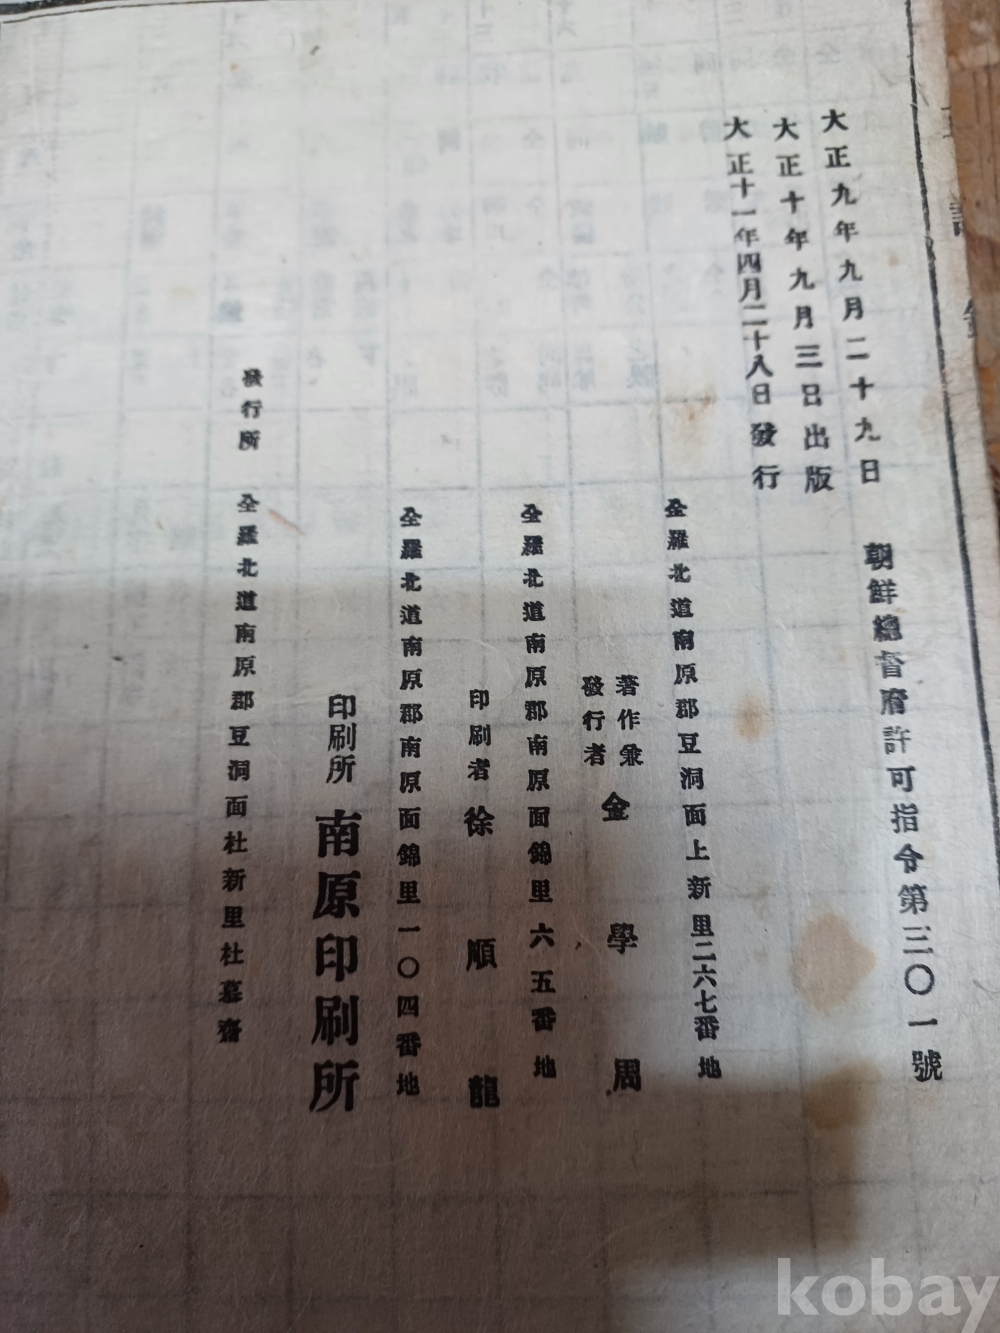 大正九年九月二十九日 朝鮮總督府許可指令第三〇一號
大正十年九月三日出版
大正十一年四月二十八日發行
全羅北道南原郡豆洞面上新里二六七番地
著作兼
發行者
金學周
全羅北道南原郡南原面錦里六五番地
印刷者 徐順龍
全羅北道南原郡南原面錦里一〇四番地
印刷所 南原印刷所
發行所 全羅北道南原郡豆洞面杜新里杜慕齋
kobay